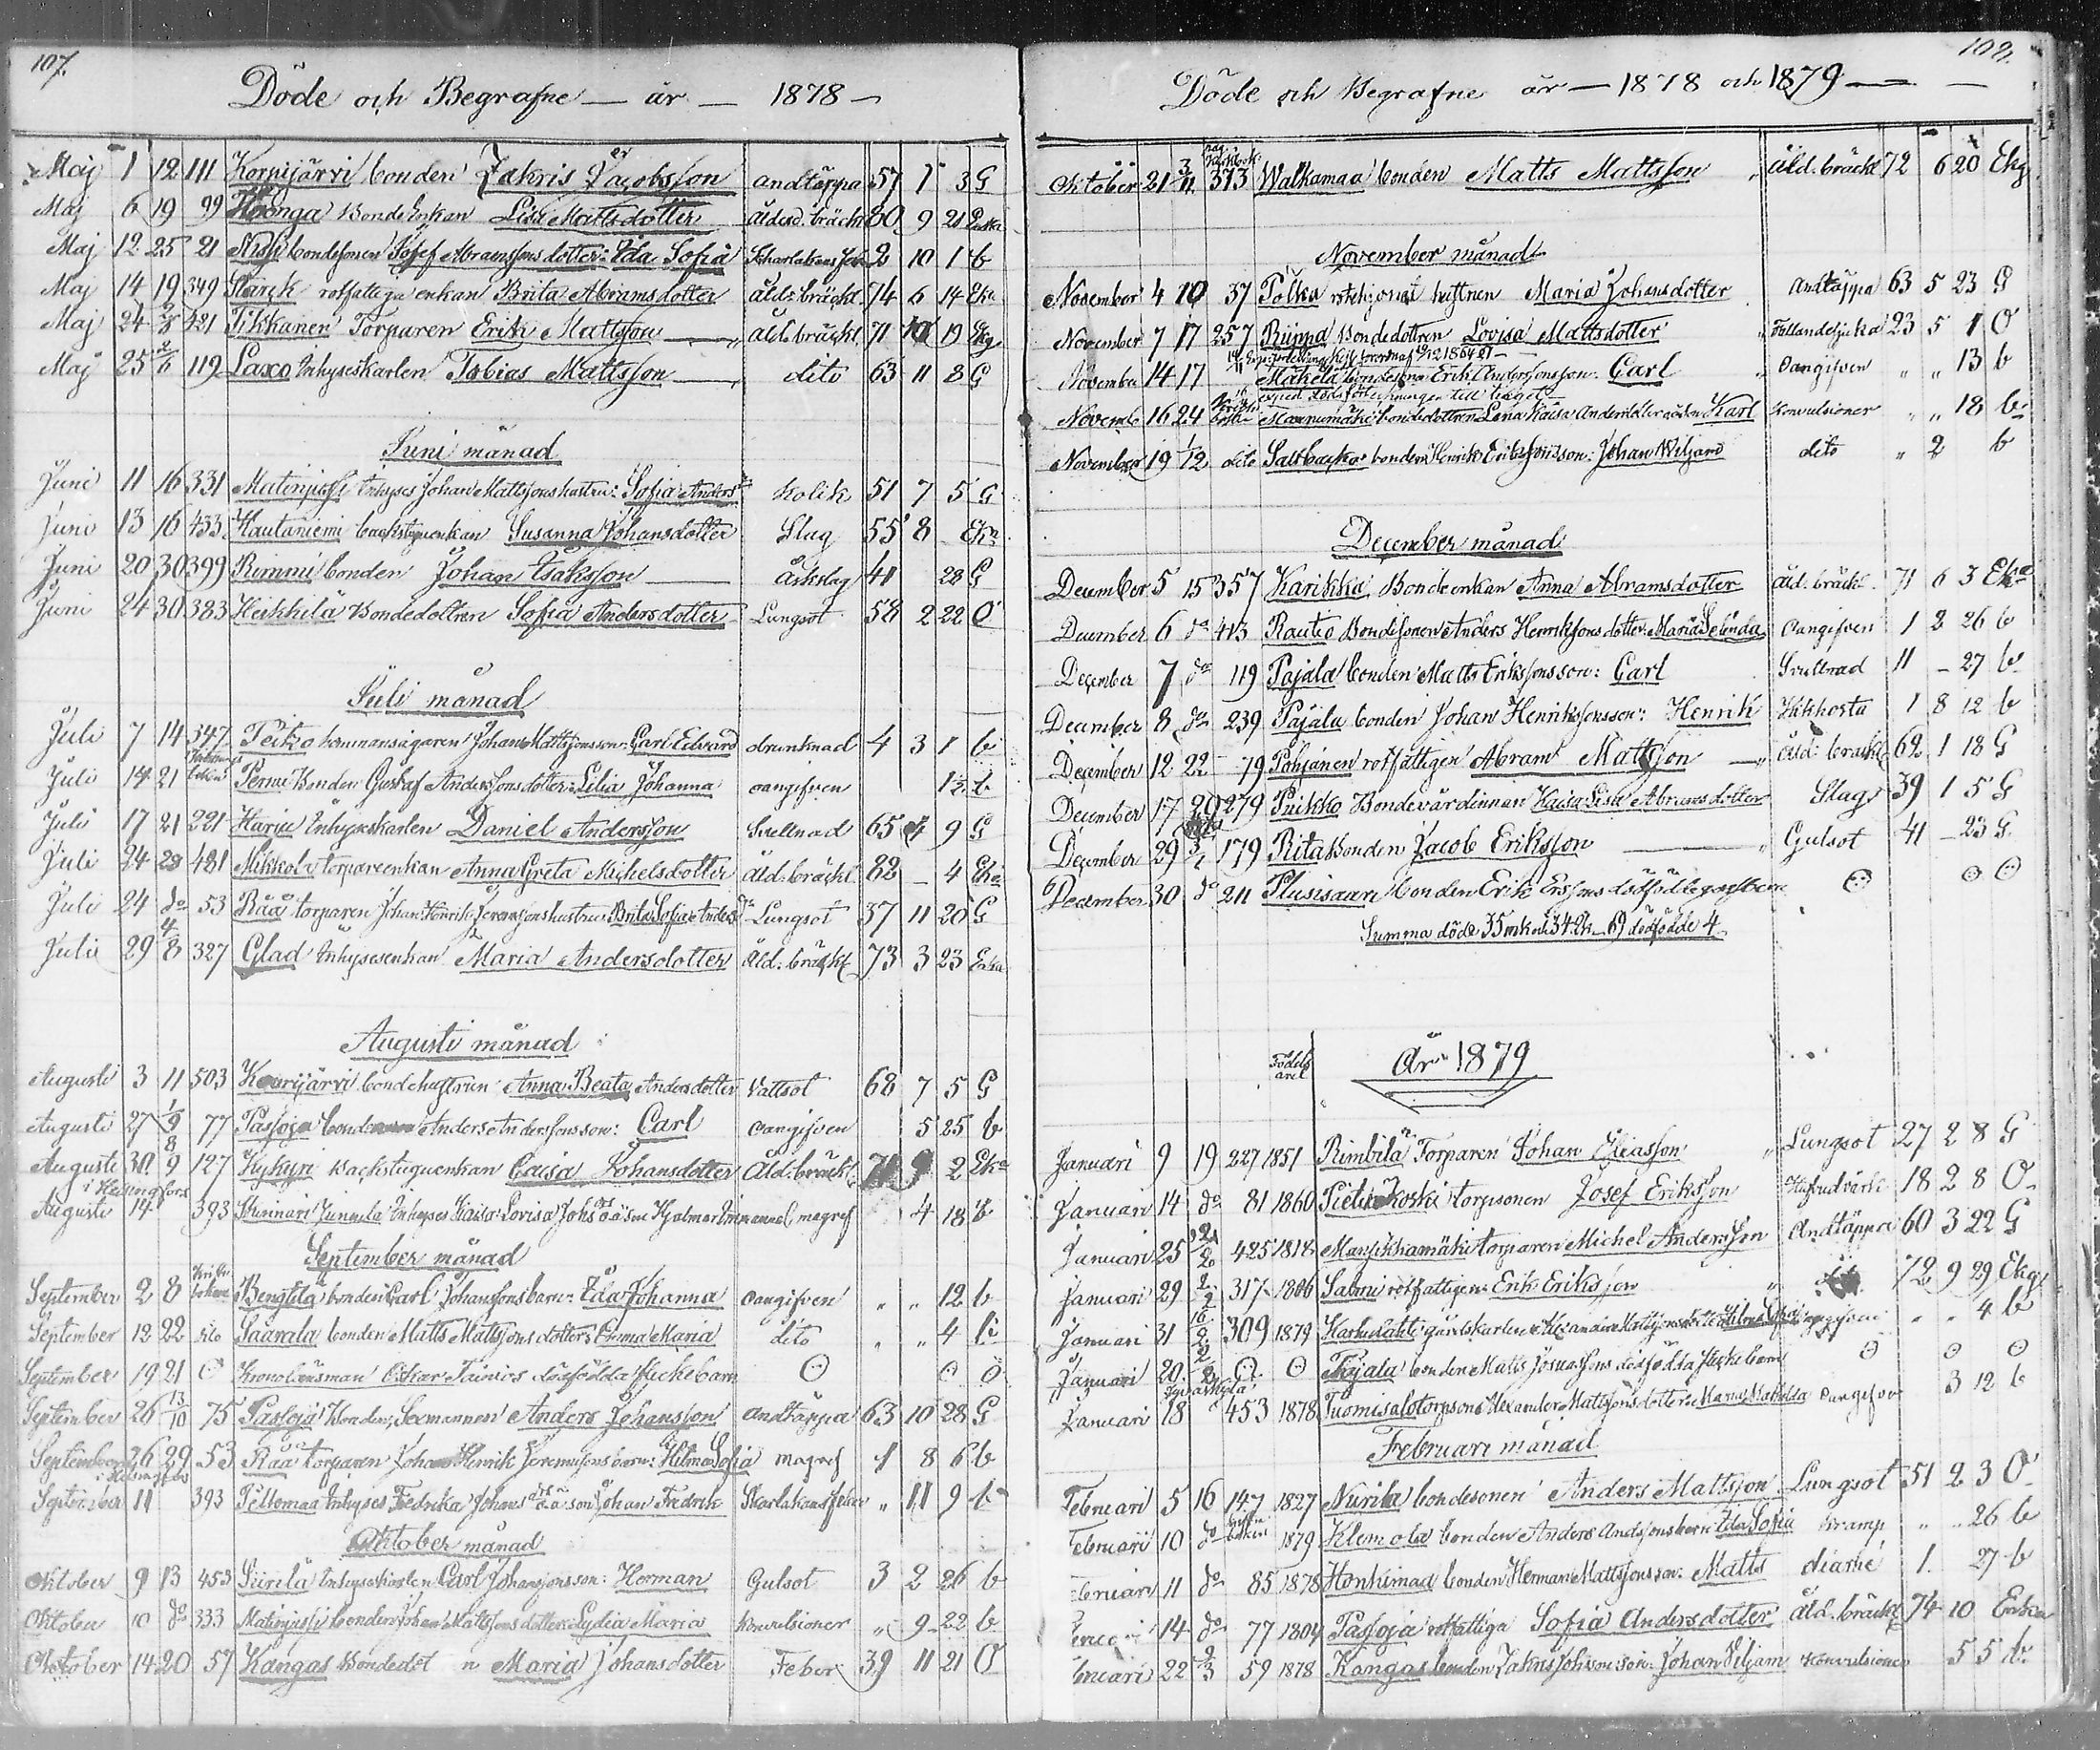 107.
Döde och Begrafne — år — 1878 —
Maj 1 12 111 Korpijärvi bonden Zakris Jacobsson andtäppa 57 1 3 G
Maj 6 19 99 Honga Bonde Enkan Lisa Mattsdotter ålderd. bräckl 80 9 21
Maj 12 25 21 bondesonen Josef Abramssons dotter: Ida Sofia 2 10 1 b
Maj 14 19 349 Starck rotfattiga enkan Brita Abramsdotter åld: bräckl. 74 6 14 Eka
Maj 24 2/6 421 Tikkanen Torparen Erik Mattsson åld. bräckl. 71 10 19 Ekg
Maj 25 2/6 119 Laxo Inhyseskarlen Tobias Mattsson dito 63 11 8 G
Juni månad
Juni 11 16 331 Matinjussi Inhyses Johan Mattssons hustru: Sofia Anders dr Kolik 51 7 5 G
Juni 13 16 433 Hautaniemi backstuguenkan Susanna Johansdotter Slag 55 8 Eka
Juni 20 30 399 Rimmi bonden Johan Isaksson Åskslag 41 28 G
Juni 24 30 383 Heikkilä Bondedottren Sofia Andersdotter Lungsot 58 2 22 O
Juli månad
Juli 7 14 347 Teiko hemmansägaren Johan Mattssons son: Carl Edvard drunknad 4 3 1 b
Juli 14 21 Pernu Bonden Gustaf Anderssons dotter: Lilia Johanna oangifven 1½ b
Juli 17 21 221 Harju Inhyseskarlen Daniel Andersson Svullnad 65 4 9 G
Juli 24 28 481 Mikkola torpareenkan Anna Greta Michelsdotter åld. bräckl. 82 – 4 Eka
Juli 24 do 53 Råå torparen Johan Henrik Jeremissons hustru Brita Sofia Anders dr Lungsot 37 11 20 G
Juli 29 4/8 327 Glad Inhysesenkan Maria Andersdotter Åld. bräckl. 73 3 23 Enka
Augusti månad
Augusti 3 11 503 bondehustrun Anna Beata Andersdotter Vattsot 68 7 5 G
Augusti 27 1/9 77 Passoja bonden Anders Anderssons son: Carl oangifven 5 25 b
Augusti 30 8/9 127 Kykyri Backstuguenkan Caisa Johansdotter Åld: bräckl. 71 9 2 Eka
i Helsingfors
Augusti 14 393 Inhyses Lovisa Johs dr o ä son Hjalmar Immanuel magref 4 18 b
September månad
September 2 8 Bengtila bonden Carl Johanssons barn: Ida Johanna oangifven " " 12 b
September 12 22 dito Saarala bonden Matts Mattssons dotter: Emma Maria dito " " 4 b
September 19 21 O Kronolänsman Oskar Tainios dödfödda flickebarn O O O
September 26 13/10 75 Passoja Bonden, Seemannen Anders Johansson andtäppa 63 10 28 G
September 26 29 53 Råå torparen Johan Henrik Jeremissons barn: Hilma Sofia magref 1 8 6 b
i Helsingfors
September 11 393 Peltomaa Inhyses Fredrika Johans dr o ä son Johan Fredrik Skarlakansfeber " 11 9 b
Oktober månad
Oktober 9 13 453 Siirilä Inhyseskarlen Carl Johanssons son: Herman Gulsot 3 2 26 b
Oktober 10 do 333 Matinjussi bonden Johan Mattssons dotter: Lydia Maria Konvulsioner " 9 22 b
Oktober 14 20 57 Kangas Bondedot n Maria Johansdotter Feber 39 11 21 O
109.
Döde och Begrafne år — 1878 och 1879 —
Oktober 21 3/11 313 Walkamaa bonden Matts Mattsson Åld. bräckl 72 6 20 Ekg
November månad
November 4 10 37 Polka hustrun Maria Johansdotter Andtäppa 63 5 23 G
November 7 17 257 Riippa Bondedottren Lovisa Mattsdotter Fallandesjuka 23 5 1 O
November 14 17 Mäkelä bondesonen Erik Anderssons son: Carl Oangifven " " 13 b
Novemb 16 24 bondedottren Lena Kaisa Andersdotter oä son Karl Konvulsioner " " 18 b
November 19 1/12 dito Saltbacka bonden Henrik Erikssons son: Johan Wiljam dito " 2 b
December månad
December 5 15 357 Karikka Bondeenkan Anna Abramsdotter åld. bräckl. 71 6 3 Eka
December 6 do 413 Rautio Bondesonen Anders Henrikssons dotter: Maria Selinda oangifven 1 2 26 b
December 7 do 119 Pajala bonden Matts Erikssons son: Carl Svullnad 11 – 27 b
December 8 do 239 Pajala bonden Johan Henrikssons son: Henrik Kikhosta 1 8 12 b
December 12 22 79 Pohjanen rotfattigen Abram Mattsson Åld: bräckl. 62 1 18 G
December 17 29 279 Prikko Bondevärdinnan Kaisa Lisa Abramsdotter Slag 39 1 5 G
December 29 179 Rita Bonden Jacob Eriksson Gulsot 41 – 23 G
December 30 do 211 Plusisaari bonden Erik Erssons dödfödde gossebarn O O O
Summa döde 35 mk och 34 qk – 69 dödfödde 4
År 1879
Födels året
Januari 9 19 227 1851 Rimbilä Torparen Johan Eliasson Lungsot 27 2 8 G
Januari 14 do 81 1860 torpsonen Josef Eriksson Hufvudvärk 18 2 8 O
Januari 25 2/2 425 1818 Mansikkamäki torparen Michel Andersson Andtäppa 60 3 22 G
Januari 29 2/2 317 1806 Salmi rotfattigen Erik Eriksson 72 9 29 Ekg
Januari 31 16/2 309 1879 Karhulahti gårdskarlen Alexander Mattssons dotter: Hilma Sofia oangifven " " 4 b
Januari 20 2/2 O O Pajala bonden Matts Josuassons dödfödda flickebarn O O O
i Jyväskylä
Januari 18 453 1878 Tuomisalo torpson Alexander Mattssons dotter: Maria Matilda oangifven 3 12 b
Februari månad
Februari 5 16 147 1827 Nurila bondesonen Anders Mattsson Lungsot 51 2 3 O
Februari 10 do 1879 Klemola bonden Anders Andssons barn: Ida Sofia Kramp " " 26 b
bruari 11 do 85 1878 Honkimaa bonden Herman Mattssons son: Matts diarhé 1 27 b
14 do 77 1804 Passoja rotfattiga Sofia Andersdotter åld. bräckl. 74 10 Enka
bruari 22 2/3 59 1878 Kangas bonden Zakris Johssons son: Johan Viljam Konvulsioner 5 5 b